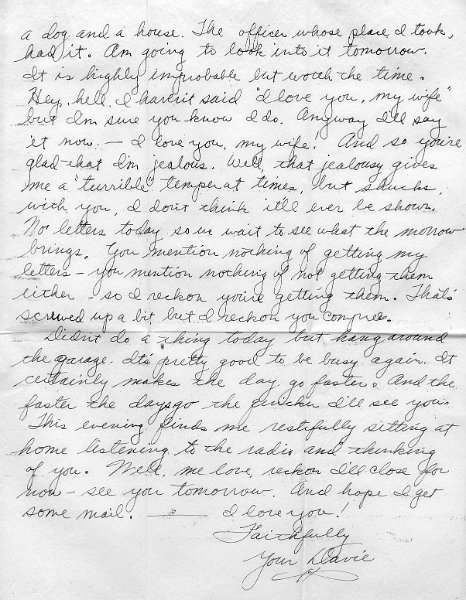 a dog and a house. The officer whose place I took,
had it. Am going to look into it tomorrow.
It is highly improbable but worth the time.
Hey, hell, I haven't said "I love you, my wife"
but I'm sure you know I do. Anyway I'll say
it now. — I love you, my wife! And so you're
glad that I'm jealous. Well, that jealousy gives
me a "turrible" temper at times, but shucks,
with you, I don't think it'll ever be shown.
No letters today so we wait to see what the morrow
brings. You mention nothing of getting my
letters - you mention nothing of not getting them
either - so I reckon you're getting them. That's
screwed up a bit but I reckon you compree.
Didn't do a thing today but hang around
the garage. It's pretty good to be busy again. It
certainly makes the day go faster. And the
faster the days go the quicker I'll see you.
This evening finds me restifully sitting at
home listening to the radio and thinking
of you. Well, me love, reckon I'll close for
now - see you tomorrow. And hope I get
some mail. — I love you!
Faithfully
Your Davie